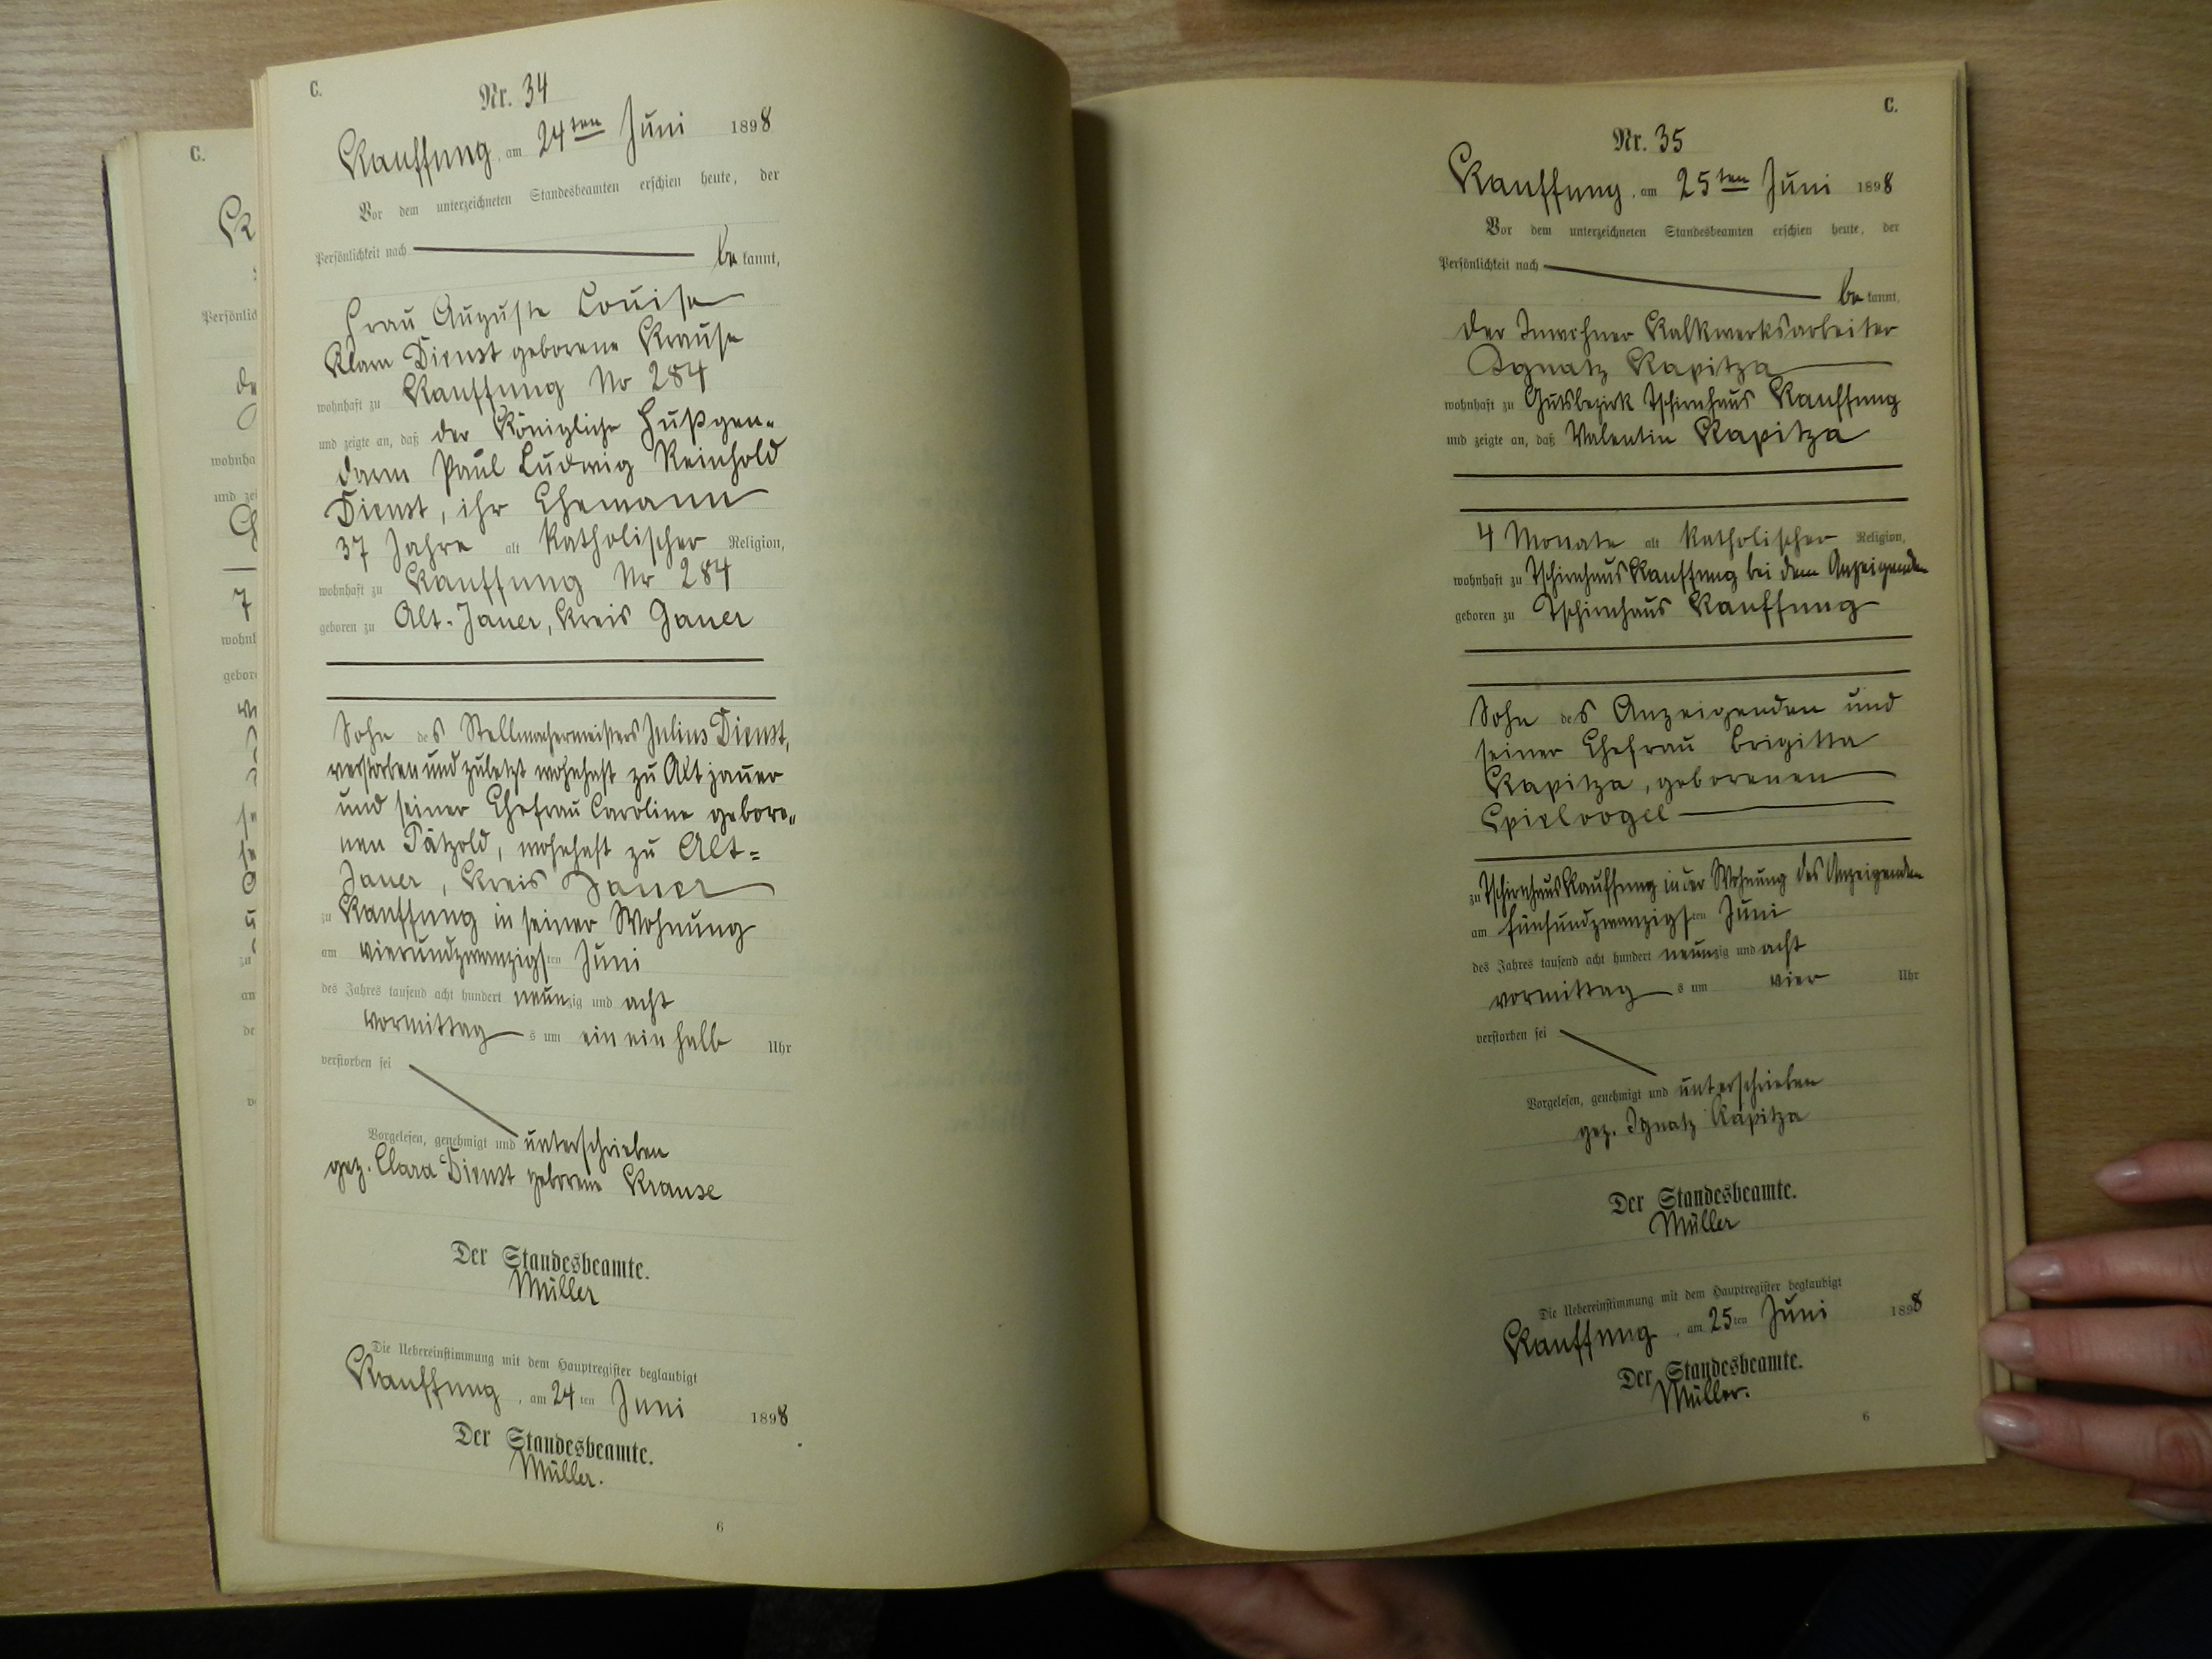 C.
Nr. 34
Kauffung, am 24ten Juni 1898
Vor dem unterzeichneten Standesbeamten erschien heute, der
Persönlichkeit nach bekannt,
Frau Auguste Louise
Klara Dienst geborene Krause
wohnhaft zu Kauffung No 284
und zeigte an, daß der Königliche Fußgen-
darm Paul Ludwig Reinhold
Dienst, ihr Ehemann
37 Jahre alt katholischer Religion,
wohnhaft zu Kauffung No 284
geboren zu Alt-Jauer, Kreis Jauer
Sohn des Stellmachermeisters Julius Dienst,
verstorben und zuletzt wohnhaft zu Alt jauer
und seiner Ehefrau Caroline gebore-
nen Pätzold, wohnhaft zu Alt-
Jauer, Kreis Jauer
zu Kauffung in seiner Wohnung
am vierundzwanzigsten Juni
des Jahres tausend acht hundert neunzig und acht
vormittags um ein ein halb Uhr
verstorben sei
Vorgelesen, genehmigt und unterschrieben
gez. Clara Dienst geborene Krause
Der Standesbeamte.
Müller
Die Uebereinstimmung mit dem Hauptregister beglaubigt
Kauffung, am 24ten Juni 1898
Der Standesbeamte.
Müller.
6
C.
Nr. 35
Kauffung, am 25ten Juni 1898
Vor dem unterzeichneten Standesbeamten erschien heute, der
Persönlichkeit nach bekannt,
der Inwohner Kalkwerksarbeiter
Ignatz Kapitza
wohnhaft zu Gutsbezirk Tschirnhaus Kauffung
und zeigte an, daß Valentin Kapitza
4 Monate alt katholischer Religion,
wohnhaft zu Tschirnhaus Kauffung bei dem Anzeigenden
geboren zu Tschirnhaus Kauffung
Sohn des Anzeigenden und
seiner Ehefrau Brigitta
Kapitza, geborenen
Spielvogel
zu Tschirnhaus Kauffung in der Wohnung des Anzeigenden
am fünfundzwanzigsten Juni
des Jahres tausend acht hundert neunzig und acht
vormittags um vier Uhr
verstorben sei
Vorgelesen, genehmigt und unterschrieben
gez. Ignatz Kapitza
Der Standesbeamte.
Müller
Die Uebereinstimmung mit dem Hauptregister beglaubigt
Kauffung, am 25ten Juni 1898
Der Standesbeamte.
Müller.
6